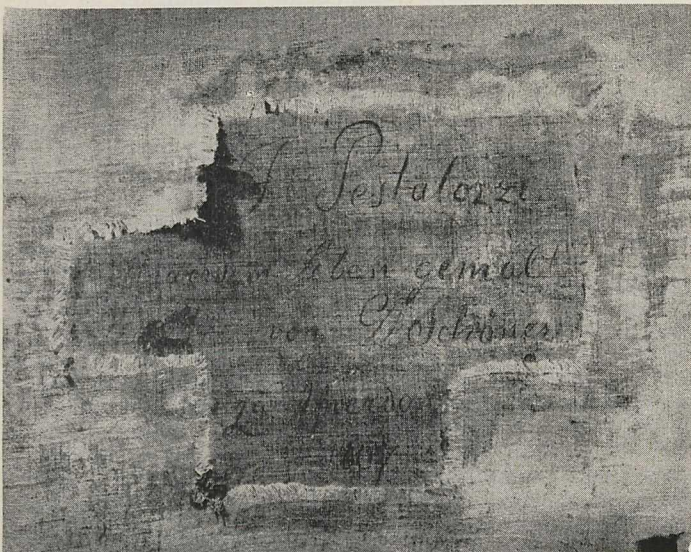 J Pestalozzi
Leben gemalt
von Schöner
zu Yverdon